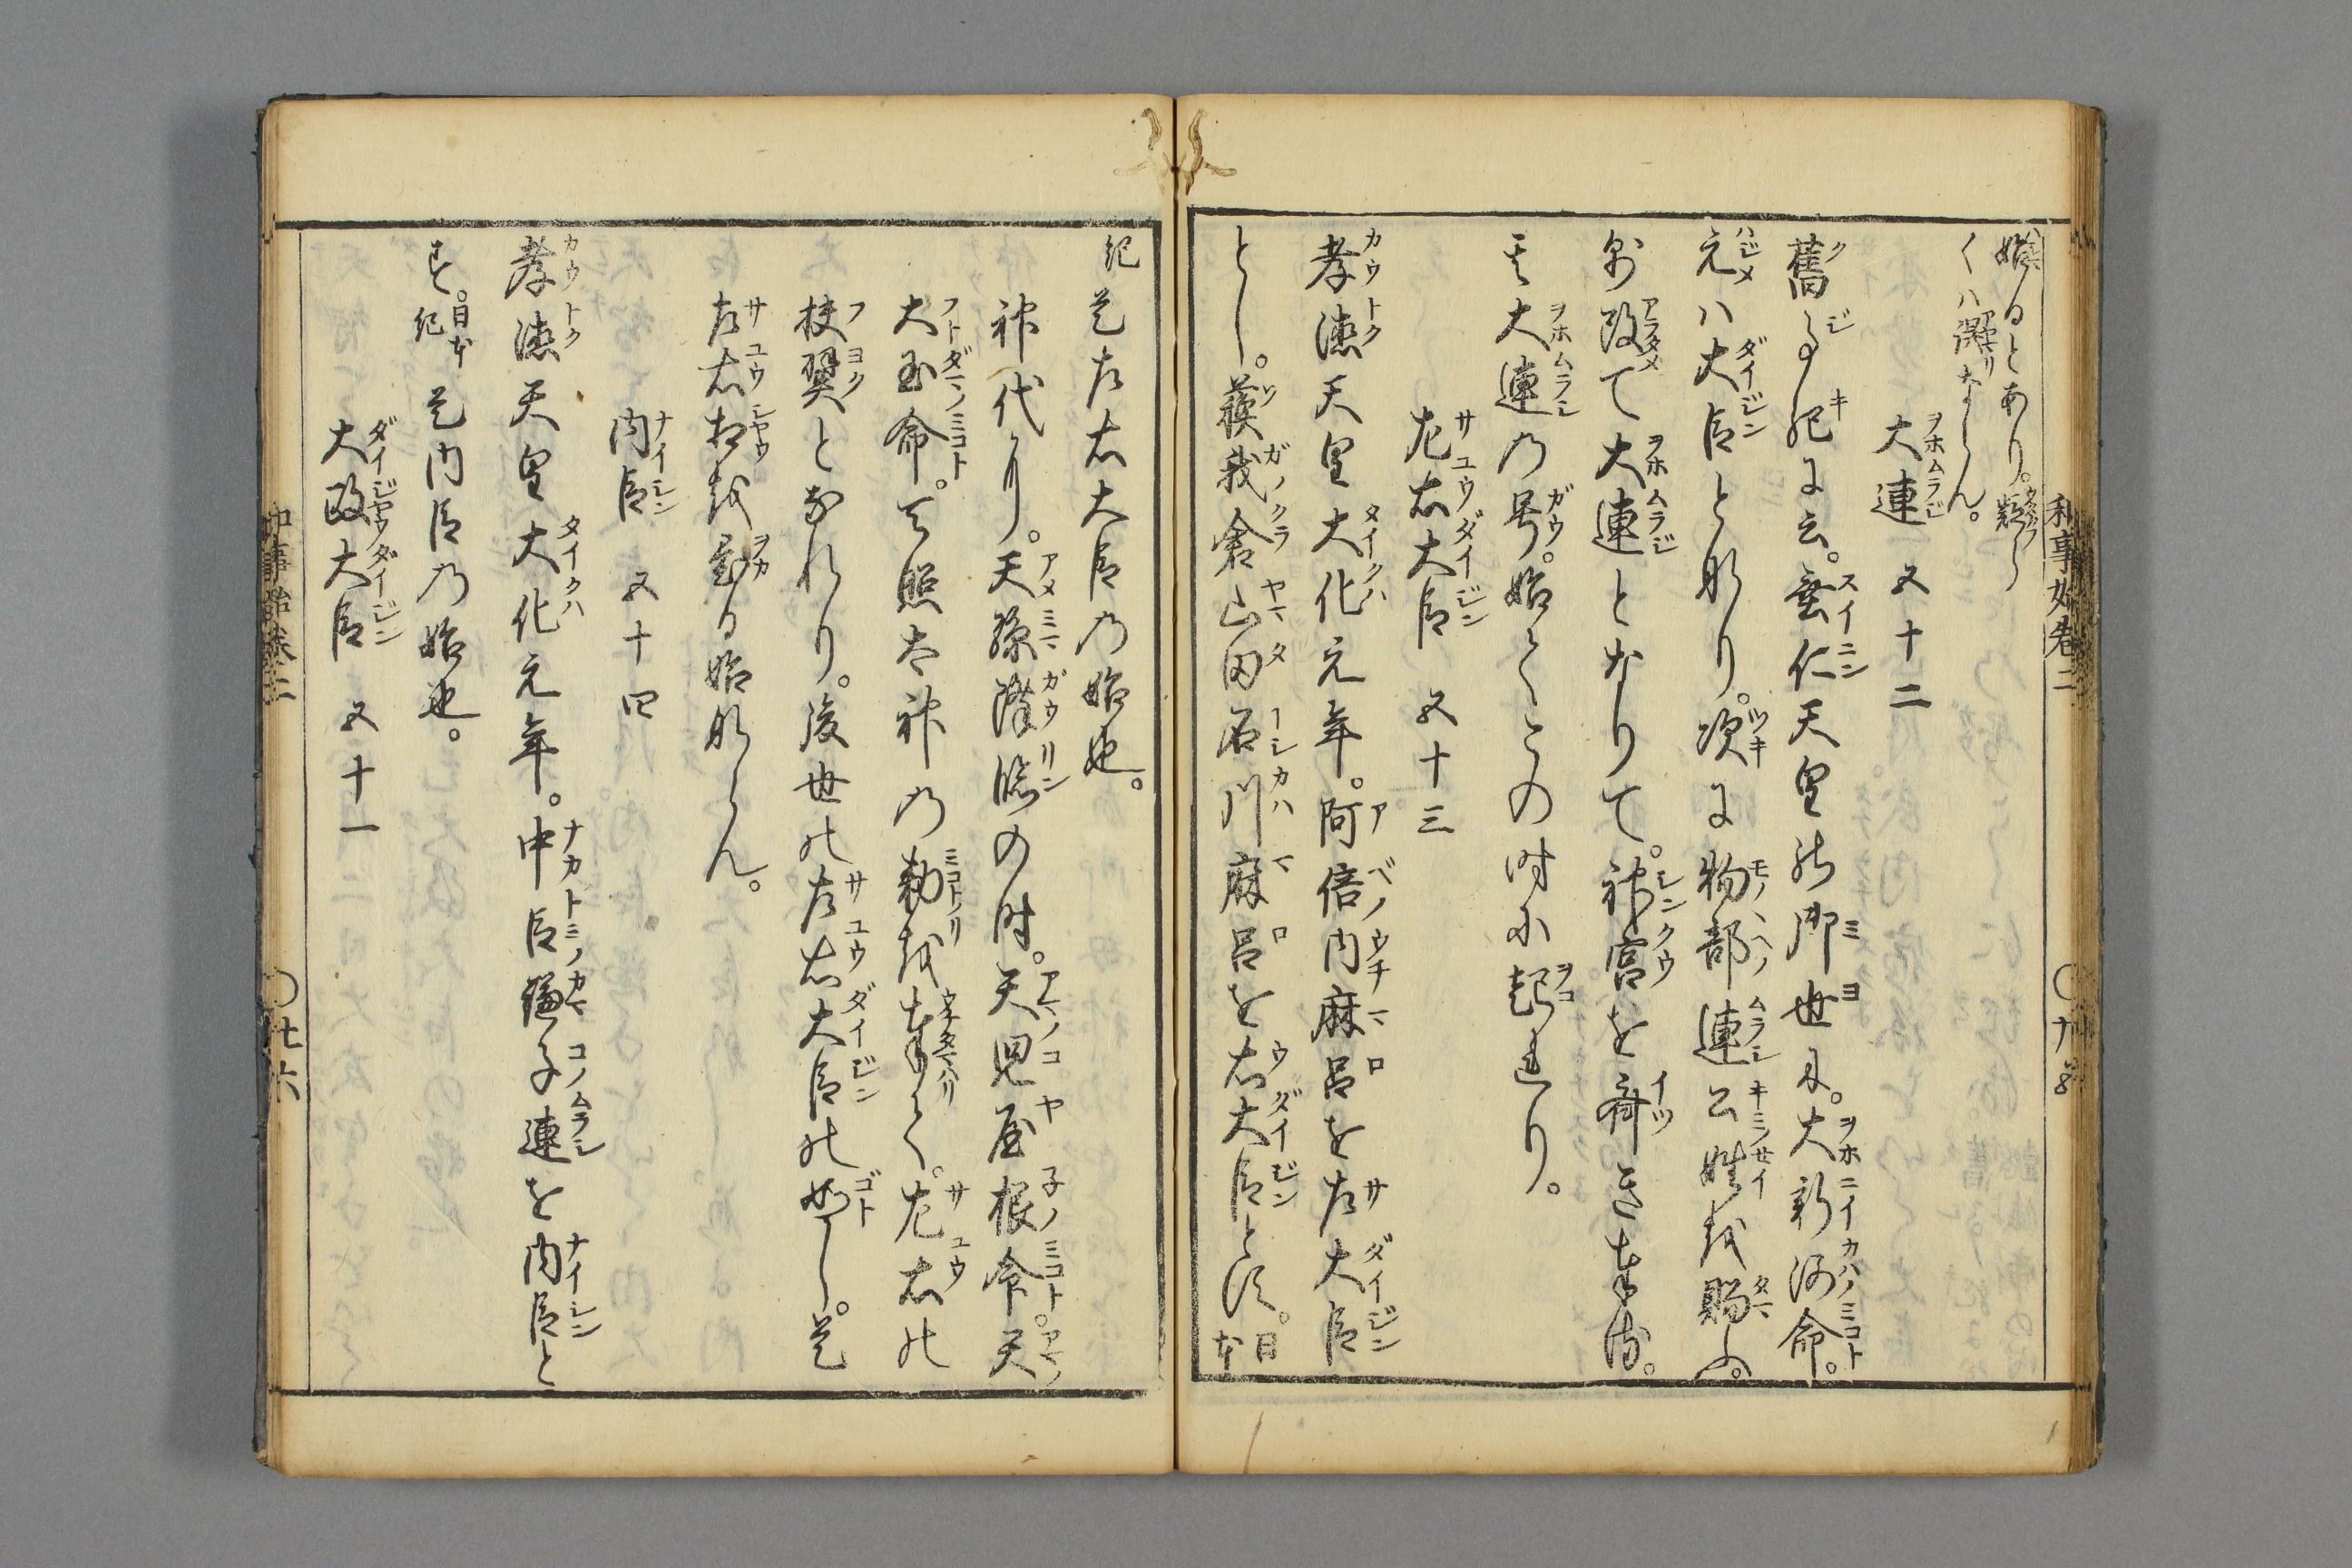 和事始巻二
始るとあり。疑らくハ
謬りならん。
大連 五十二
舊事紀に云。垂仁天皇の御世に。大新河命。
元ハ大臣と也り。次に物部連公姓を賜ふ。
則改て大連となりて。神宮を齋き奉る。
其大連の号。始てこの時に起れり。
左右大臣 五十三
孝徳天皇大化元年。阿倍内麻呂を左大臣
とし。蘇我倉山田石川麻呂を右大臣とす。日本
紀 是左右大臣の始也。
神代より。天孫降臨の時。天児屋根命。天
太玉命。天照太神の勅を奉りて。左右の
扶翼となれり。後世の左右大臣の如し。是
左右相を置る始ならん。
内臣 五十四
孝徳天皇大化元年。中臣鎌子連を内臣と
す。日本紀 是内臣の始也。
大政大臣 五十一
和事始巻二 〇廿六